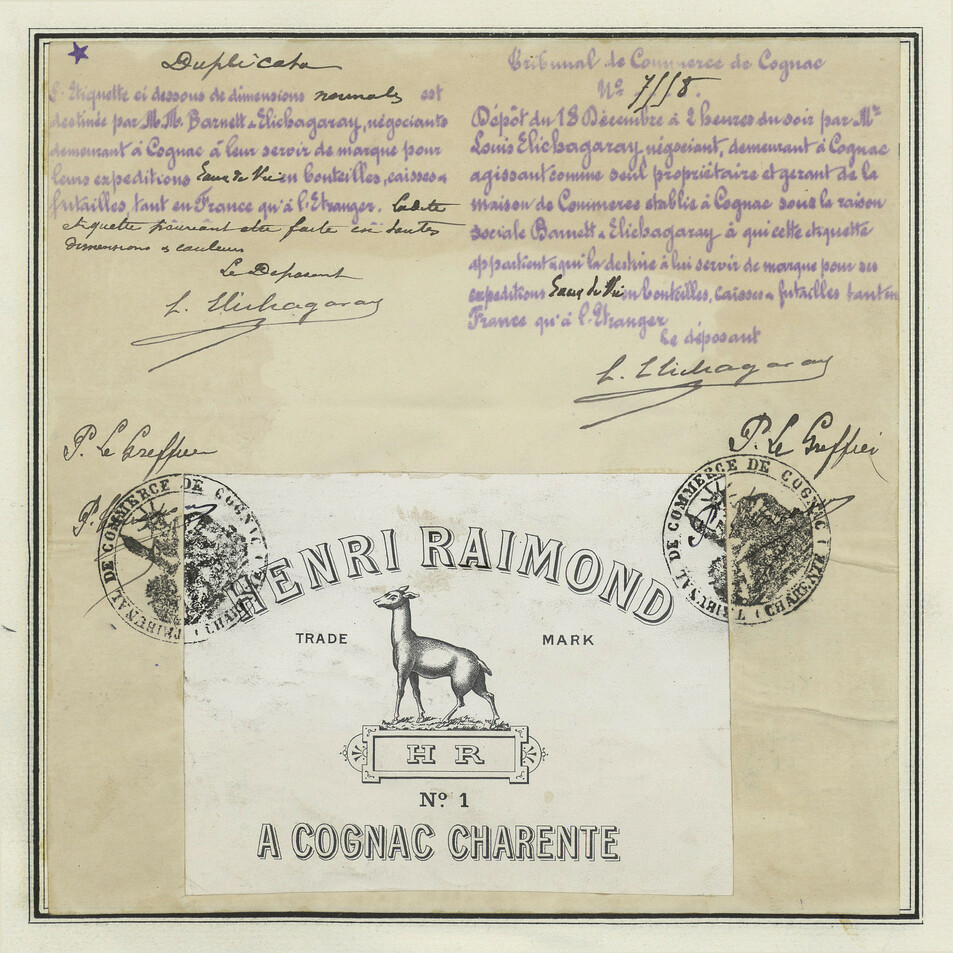 Duplicata
L'Etiquette ci dessous de dimensions normales est
destinée par M.M. Barnett & Elichagaray, négociants
demeurant à Cognac à leur servir de marque pour
leurs expeditions Eaux de Vie en bouteilles, caisses &
futailles, tant en France qu'à l'Etranger. Ladite
etiquette pouvant etre faite en toutes
dimensions & couleurs
Le Deposant
L. Elichagaray
Tribunal de Commerce de Cognac
No
Dépôt du 18 Décembre à 2 heures du soir par Mr
Louis Elichagaray, négociant, demeurant à Cognac
agissant comme seul propriétaire et gerant de la
maison de Commerce etablie à Cognac sous la raison
sociale Barnett & Elichagaray à qui cette etiquette
appartient & qui la destine à lui servir de marque pour ses
expeditions Eaux de Vie en bouteilles, caisses & futailles tant en
France qu'à l'Etranger
Le déposant
L. Elichagaray
P. Le Greffier
P. Le Greffier
TRIBUNAL DE COMMERCE DE COGNAC (CHARENTE)
TRIBUNAL DE COMMERCE DE COGNAC (CHARENTE)
HENRI RAIMOND
TRADE MARK
H R
No. 1
A COGNAC CHARENTE